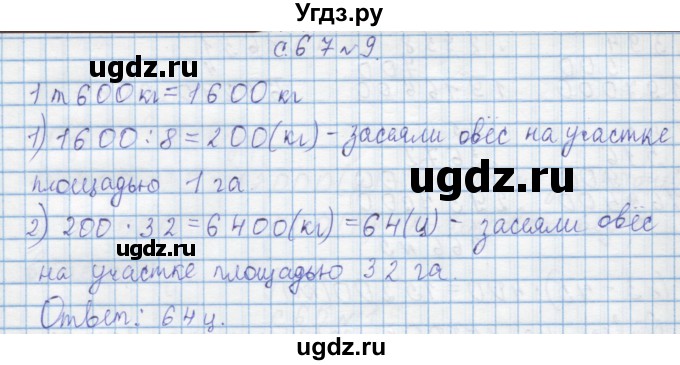 Угдз.ру
с. 67 № 9.
ugdz.ru
1 т 600 кг = 1600 кг
ugdz.ru
1) 1600 : 8 = 200 (кг) - засеяли овёс на участке
площадью 1 га.
ugdz.ru
2) 200 · 32 = 6400 (кг) = 64 (ц) - засеяли овёс
на участке площадью 32 га.
ugdz.ru
Ответ: 64 ц.
ugdz.ru